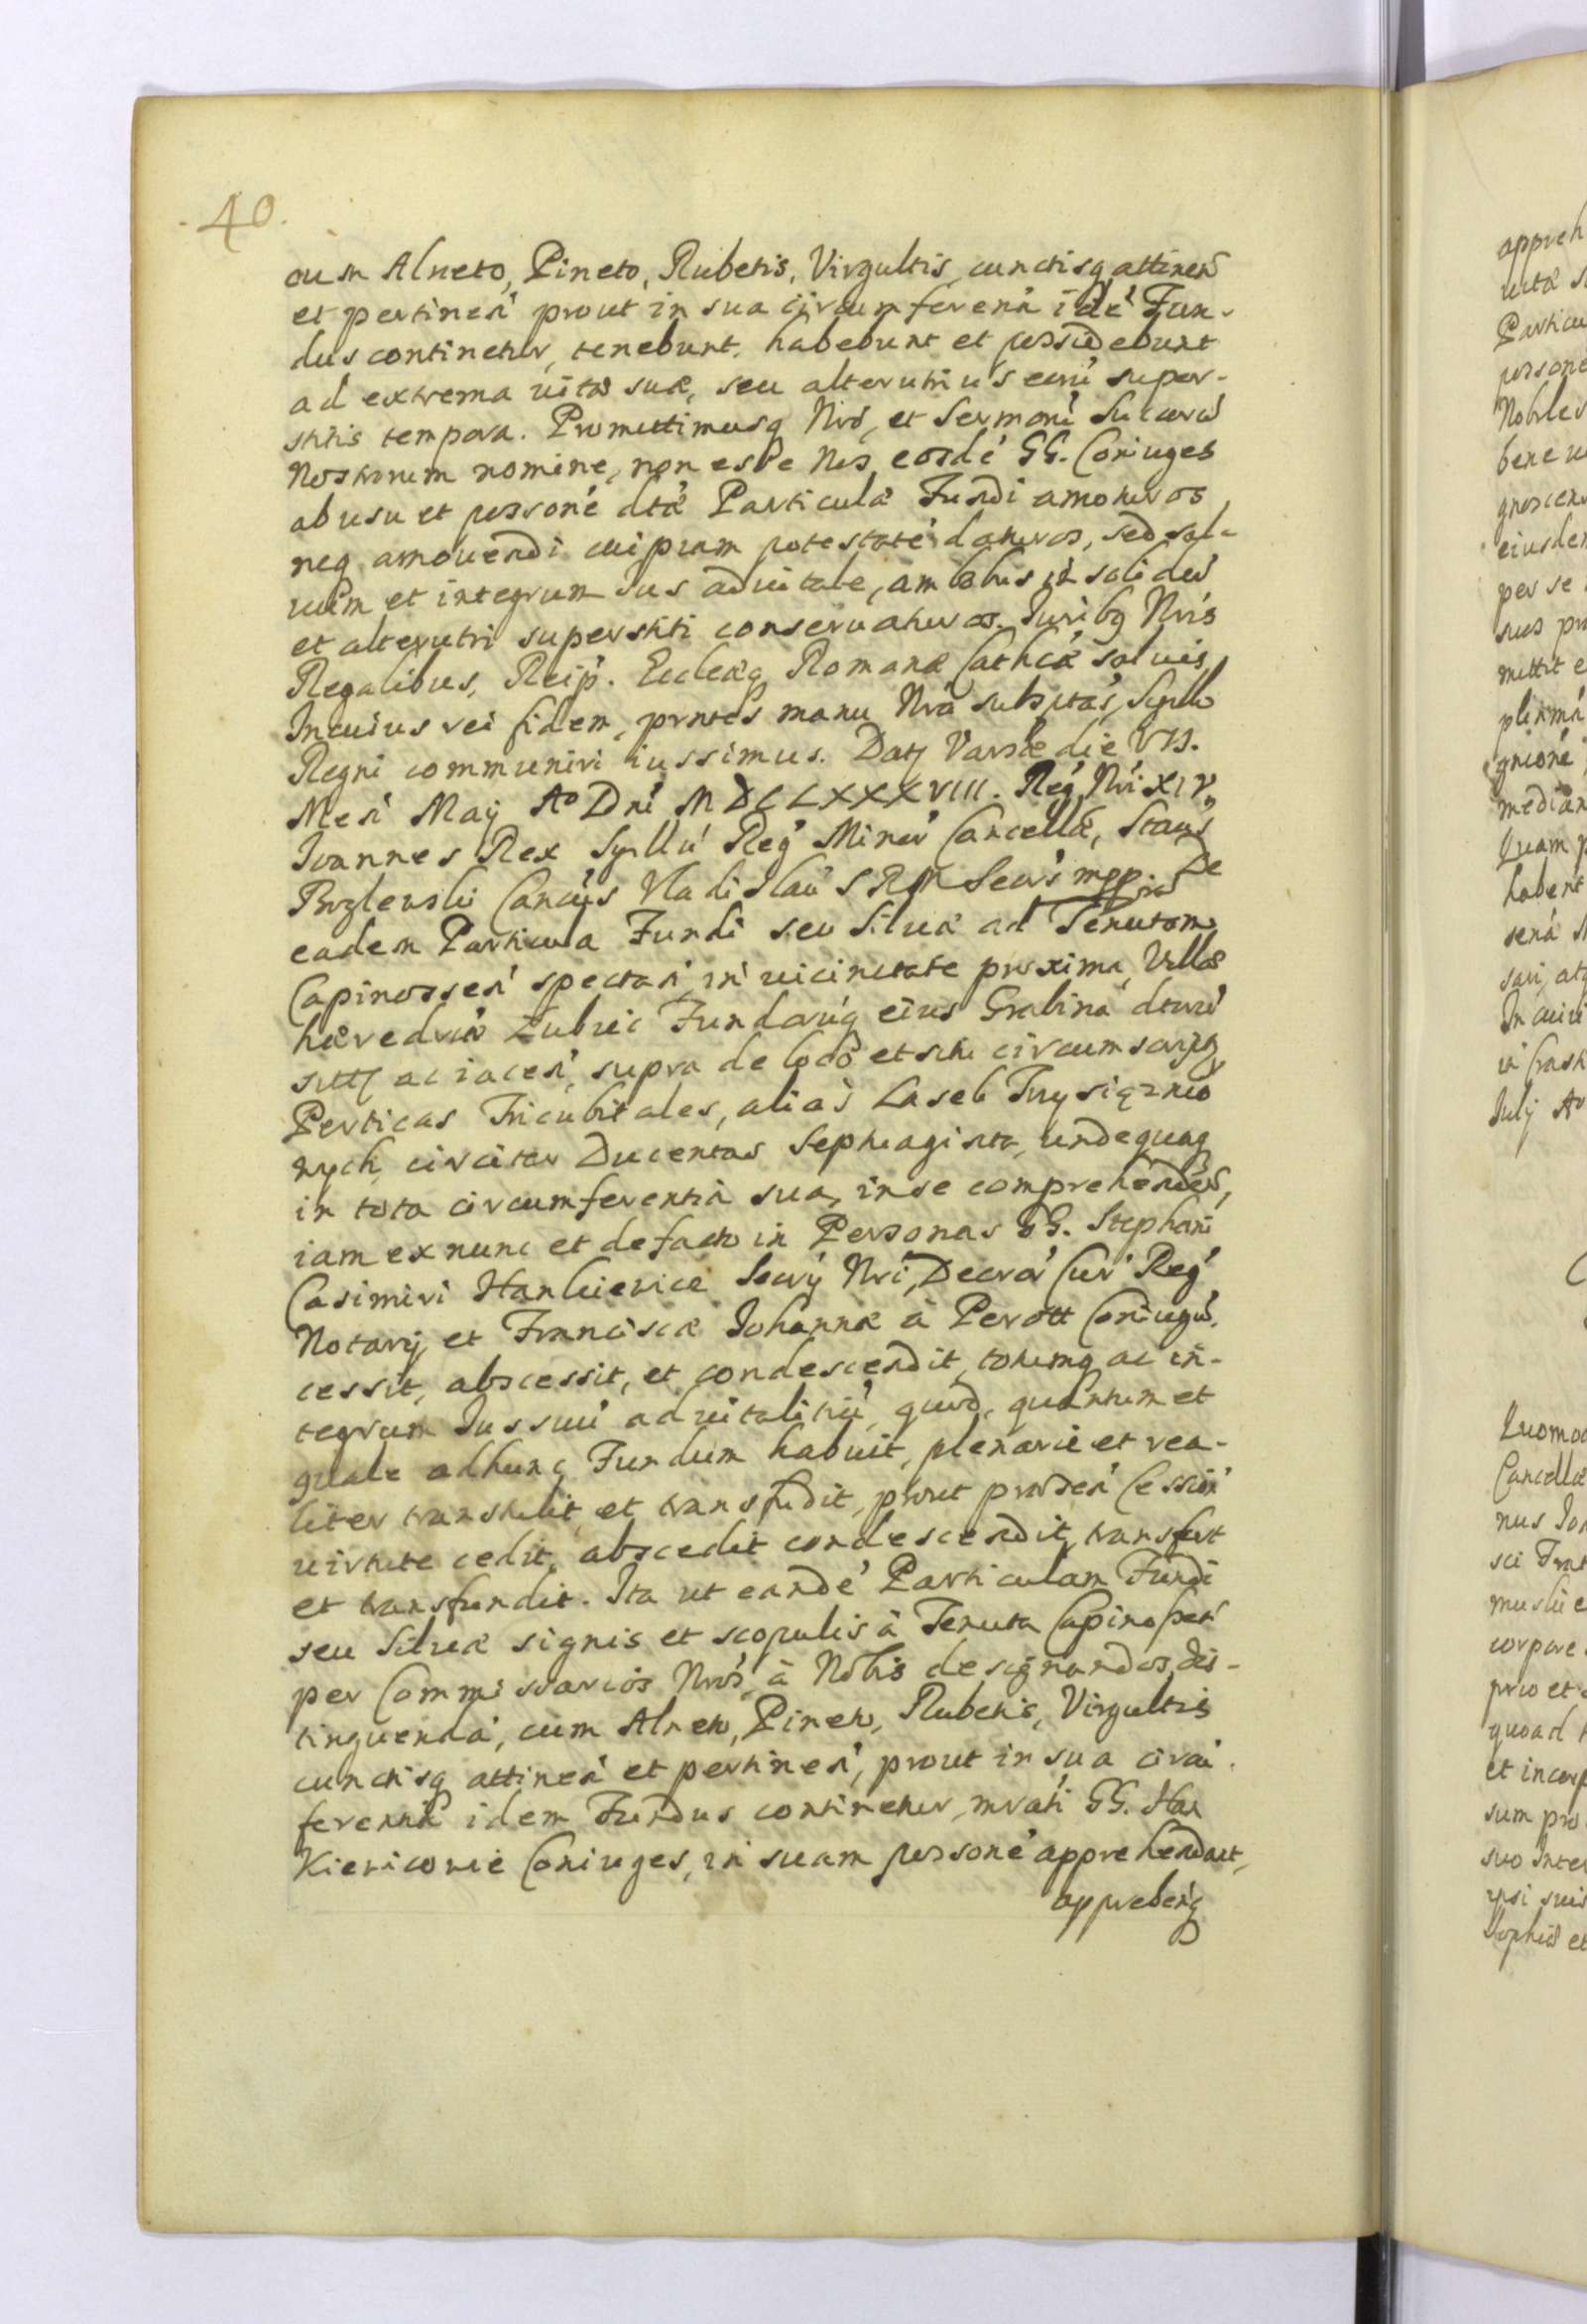 40.
cum Alneto, Pineto, Rubetis, Virgultis, cunctisq attinen
et pertinen prout in sua circumferen idē Fun-
dus continetur, tenebunt, habebunt et possidebunt
ad extrema vitæ suæ, seu alterutrius eorū super-
stitis tempora. Promittimusq Nrō, et Sermorū Succorū
Nostrorum nomine, non esse Nos eosdē GG. Coniuges
ab usu et possonē dtæ Particulæ Fundi amoturos
neq amovendi cuipiam potestatē daturos, sed sal-
vum et integrum Jus advitale, ambobus in solidū
et alterutri superstiti conservaturos. Juribq Nris
Regalibus, Reip. Ecclæq Romanæ Cathcæ salvis,
In cuius rei fidem, prntes manu Nra subscrtas, Sigillo
Regni communiri iussimus. Datt Varsæ die VII.
Men May Aº Dni MDCLXXXVIII. Reg Nri XIV.
Joannes Rex Sigillū Reg Minus Cancellæ, Staus
Cancus Vladislau SRM Secrs mpp. De
eadem Particula Fundi seu Silvæ ad Tenutam
Capinossen spectan in vicinitate proxima, Villæ
hæredriæ Zubric Fundorūq eius Grabina dtorū
sitt ac iacen, supra de loco et situ circumscript
Perticas Tricubitales, aliàs Lasek Trzsiąznio
nych, circiter Ducentas Septuaginta, undequaq
in tota circumferentia sua, in se comprehenden,
iam ex nunc et de facto in Personas GG. Stephani
Casimiri Hankiewice Secrij Nri, Decror Cur Reg
Notarij et Franciscæ Johannæ à Perott Coniugū.
cessit, abscessit, et condescendit, totumq ac in-
tegrum Jus suū advitalitiū, quod, quantum et
quale ad hunc Fundum habuit, plenarie et rea-
liter transtulit et transfudit, prout præsen Cession
virtute cedit, abscedit condescendit, transfert
et transfundit. Ita ut eandē Particulam Fundi
seu Silvæ signis et scopulis à Tenuta Capinossen
per Commissarios Nros à Nobis designandos, dis-
tinguenda, cum Alneto, Pineto, Rubetis, Virgultis
cunctisq attinen et pertinen, prout in sua circū
ferentia idem Fundus continetur, mrati GG. Han
Kiewicowie Coniuges, in suam possonē apprehendant,
apprehenq